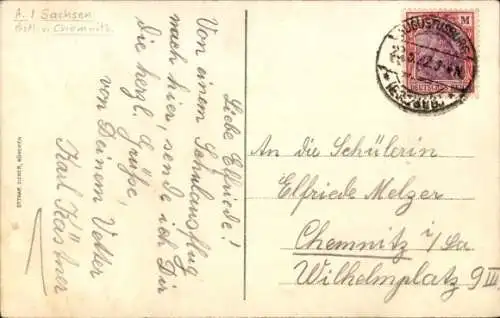 A. / Sachsen.
östl. v. Chemnitz.
Liebe Elfriede!
Von einem Schulausflug
nach hier, sende ich Dir
die herzl. Grüße,
von Deinem Vetter
Karl Kästner
An die Schülerin
Elfriede Melzer
Chemnitz i/Sa
Wilhelmplatz 9 III
M
AUGUSTUSBURG
(ERZGEB.)
OTTMAR ZIEHER, MÜNCHEN